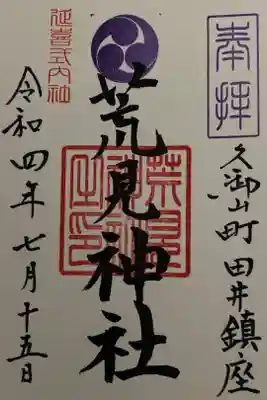 奉拝
久御山町 田井鎮座
延喜式内社
荒見神社
荒見神社之印
令和四年七月十五日